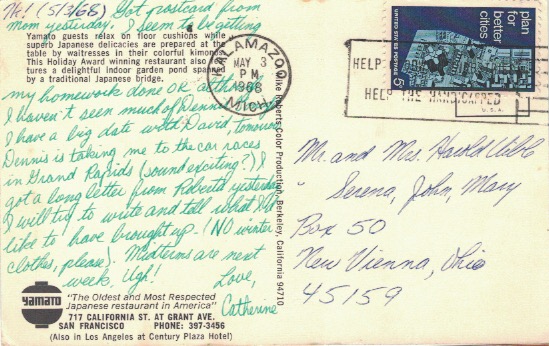 Hi! (5/3/68) Got postcard from
mom yesterday. I seem to be getting
Yamato guests relax on floor cushions while
superb Japanese delicacies are prepared at the
table by waitresses in their colorful kimonos.
This Holiday Award winning restaurant also
tures a delightful indoor garden pond
by a traditional Japanese bridge.
my homework done OK
I haven't seen much of Dennis
I have a big date with David tomorrow
Dennis is taking me to the car races
in Grand Rapids (sound exciting?) I
got a long letter from Roberta yesterday
I will try to write and tell what I'd
like to have brought up. (NO winter
clothes, please). Midterms are next
week, Ugh! Love,
Catherine
yamato
"The Oldest and Most Respected
Japanese restaurant in America"
717 CALIFORNIA ST. AT GRANT AVE.
SAN FRANCISCO PHONE: 397-3456
(Also in Los Angeles at Century Plaza Hotel)
Mike Roberts Color Production, Berkeley, California 94710
KALAMAZOO
MAY 3
P.M.
1968
MICH
HELP
HELP THE HANDICAPPED
U.S.A.
plan
for
better
cities
UNITED STATES POSTAGE 5¢
Mr. and Mrs. Harold Uible
" Serena, John, Mary
Box 50
New Vienna, Ohio
45159